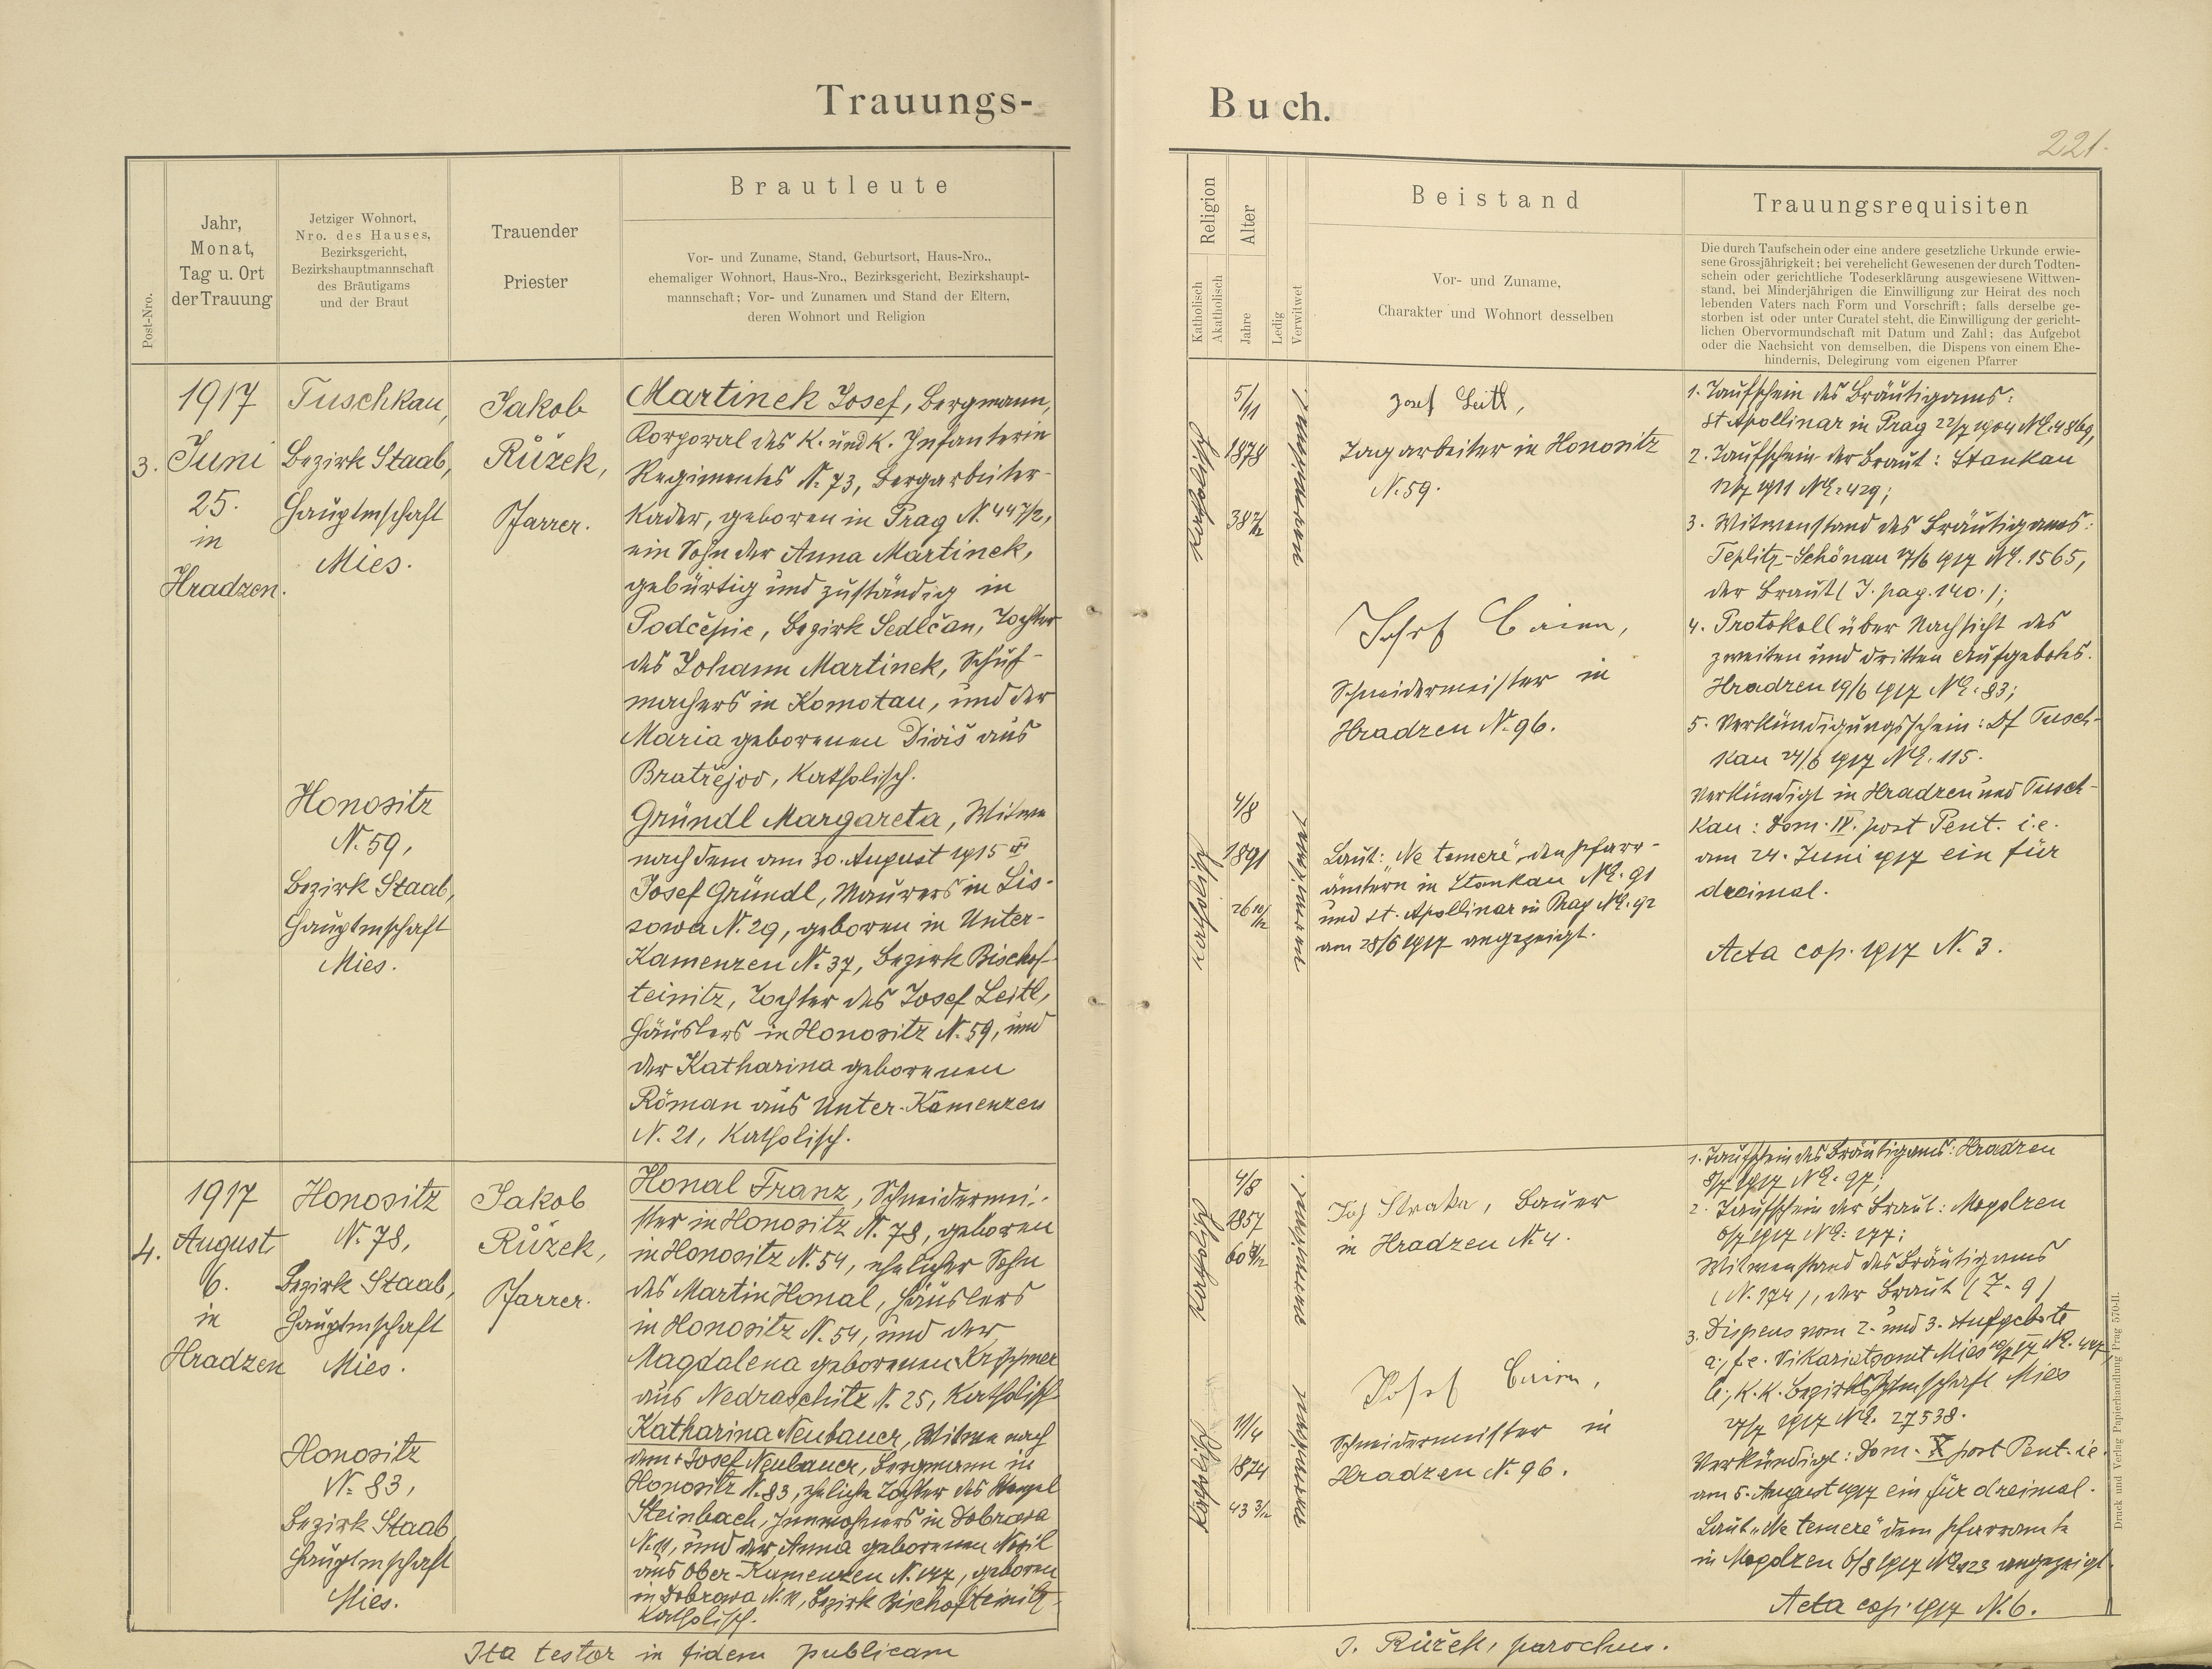 Trauungs-
Buch.
221.
Post-Nro.
Jahr,
Monat,
Tag u. Ort
der Trauung
Jetziger Wohnort,
Nro. des Hauses,
Bezirksgericht,
Bezirkshauptmannschaft
des Bräutigams
und der Braut
Trauender
Priester
Brautleute
Vor- und Zuname, Stand, Geburtsort, Haus-Nro.,
ehemaliger Wohnort, Haus-Nro., Bezirksgericht, Bezirkshaupt-
mannschaft; Vor- und Zunamen und Stand der Eltern,
deren Wohnort und Religion
Religion
Katholisch
Akatholisch
Alter
Jahre
Ledig
Verwitwet
Beistand
Vor- und Zuname,
Charakter und Wohnort desselben
Trauungsrequisiten
Die durch Taufschein oder eine andere gesetzliche Urkunde erwie-
sene Grossjährigkeit; bei verehelicht Gewesenen der durch Todten-
schein oder gerichtliche Todeserklärung ausgewiesene Wittwen-
stand, bei Minderjährigen die Einwilligung zur Heirat des noch
lebenden Vaters nach Form und Vorschrift; falls derselbe ge-
storben ist oder unter Curatel steht, die Einwilligung der gericht-
lichen Obervormundschaft mit Datum und Zahl; das Aufgebot
oder die Nachsicht von demselben, die Dispens von einem Ehe-
hindernis, Delegirung vom eigenen Pfarrer
3.
1917
Juni
25.
in
Hradzen.
Tuschkau,
Bezirk Staab,
Hauptmschaft
Mies.
Honositz
N. 59,
Bezirk Staab,
Hauptmschaft
Mies.
Jakob
Růžek,
Pfarrer.
Martinek Josef, Bergmann,
Korporal des K. und K. Infanterie
Regimentes N. 73, Bergarbeiter-
Kader, geboren in Prag N. 447/2,
ein Sohn der Anna Martinek,
gebürtig und zuständig in
Podčepic, Bezirk Sedlčan, Tochter
des Johann Martinek, Schuh-
machers in Komotau, und der
Maria geborenen Diviš aus
Bratřejov, Katholisch.
Gründl Margareta, Witwe
nach dem am 30. August 1915
Josef Gründl, Maurers in Lis-
sowa N. 29, geboren in Unter-
Kamenzen N. 37, Bezirk Bischof-
teinitz, Tochter des Josef Leitl,
Häuslers in Honositz N. 59, und
der Katharina geborenen
Röman aus Unter-Kamenzen
N. 21, Katholisch.
Katholisch
5/11
1878
38 7/12
verwitwet
Josef Leitl,
Tagarbeiter in Honositz
N. 59.
Josef
Schneidermeister in
Hradzen N. 96.
Katholisch
4/8
1891
26 10/12
verwitwet
Laut: "Ne temere", den Pfarr-
ämtern in Stankau NE. 91
und St. Apollinar in Prag NE. 92
am 28/6 1917 angezeigt.
1. Taufschein des Bräutigams:
St. Apollinar in Prag 22/7 1904 NE. 4869,
2. Taufschein der Braut: Stankau
12/7 1911 NE. 429;
3. Witwenstand des Bräutigams:
Teplitz-Schönau 17/6 1917 NE. 1565,
der Braut (J. pag. 140.);
4. Protokoll über Nachsicht des
zweiten und dritten Aufgebotes.
Hradzen 19/6 1917 NE. 83;
5. Verkündigungsschein: Tusch-
kau 24/6 1917 NE. 115.
Verkündigt in Hradzen und Tusch-
kau: Dom. IV. post Pent. i.e.
am 24. Juni 1917 ein für
dreimal.
Acta cop. 1917 N. 3.
4.
1917
August
6.
in
Hradzen
Honositz
N. 78,
Bezirk Staab,
Hauptmschaft
Mies.
Honositz
N. 83,
Bezirk Staab
Hauptmschaft
Mies.
Jakob
Růžek,
Pfarrer.
Honal Franz, Schneidermei-
ster in Honositz N. 78, geboren
in Honositz N. 54, ehelicher Sohn
des Martin Honal, Häuslers
in Honositz N. 54, und der
Magdalena geborenen Krippner
aus Nedraschitz N. 25, Katholisch
Katharina Neubauer, Witwe nach
dem + Josef Neubauer, Bergmann in
Honositz N. 83, eheliche Tochter des
Steinbach, Inwohners in Dobrowa
N. 11, und der Anna geborenen
aus Ober-Kamenzen N. 147, geboren
in Dobrowa N. 11, Bezirk Bischofteinitz
Katholisch.
Katholisch
4/8
1857
verwitwet
Jos. Straka, Bauer
in Hradzen N. 4.
Josef
Schneidermeister in
Hradzen N. 96.
Katholisch
11/4
1874
43 3/12
verwitwet
1. Taufschein des Bräutigams: Hradzen
8/7 1917 NE. 97;
2. Taufschein der Braut: Mogolzen
6/7 1917 NE. 177;
Witwenstand des Bräutigams
(N. 174), der Braut (Z. 9)
3. Dispens vom 2. und 3. Aufgebote
a, f.e. Vikariatsamt Mies
b, K.K. Bezirkshptmschaft Mies
27/7 1917 NE. 27538.
Verkündigt: Dom. X post Pent. i.e.
am 5. August 1917 ein für dreimal.
Laut "Ne temere" dem Pfarramte
in Mogolzen 6/8 1917 angezeigt.
Acta cop. 1917 N. 6.
Druck und Verlag Papierhandlung Prag 570-II.
Ita testor in fidem publicam
J. Růžek, parochus.